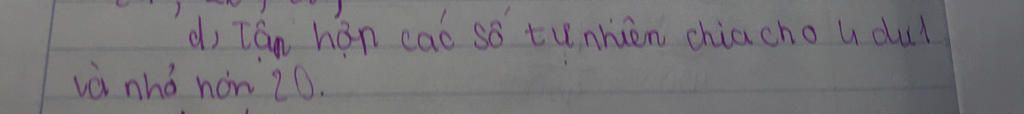 d, Tận hợn các số tự nhiên chia cho 4 dư 1
và nhỏ hơn 20.